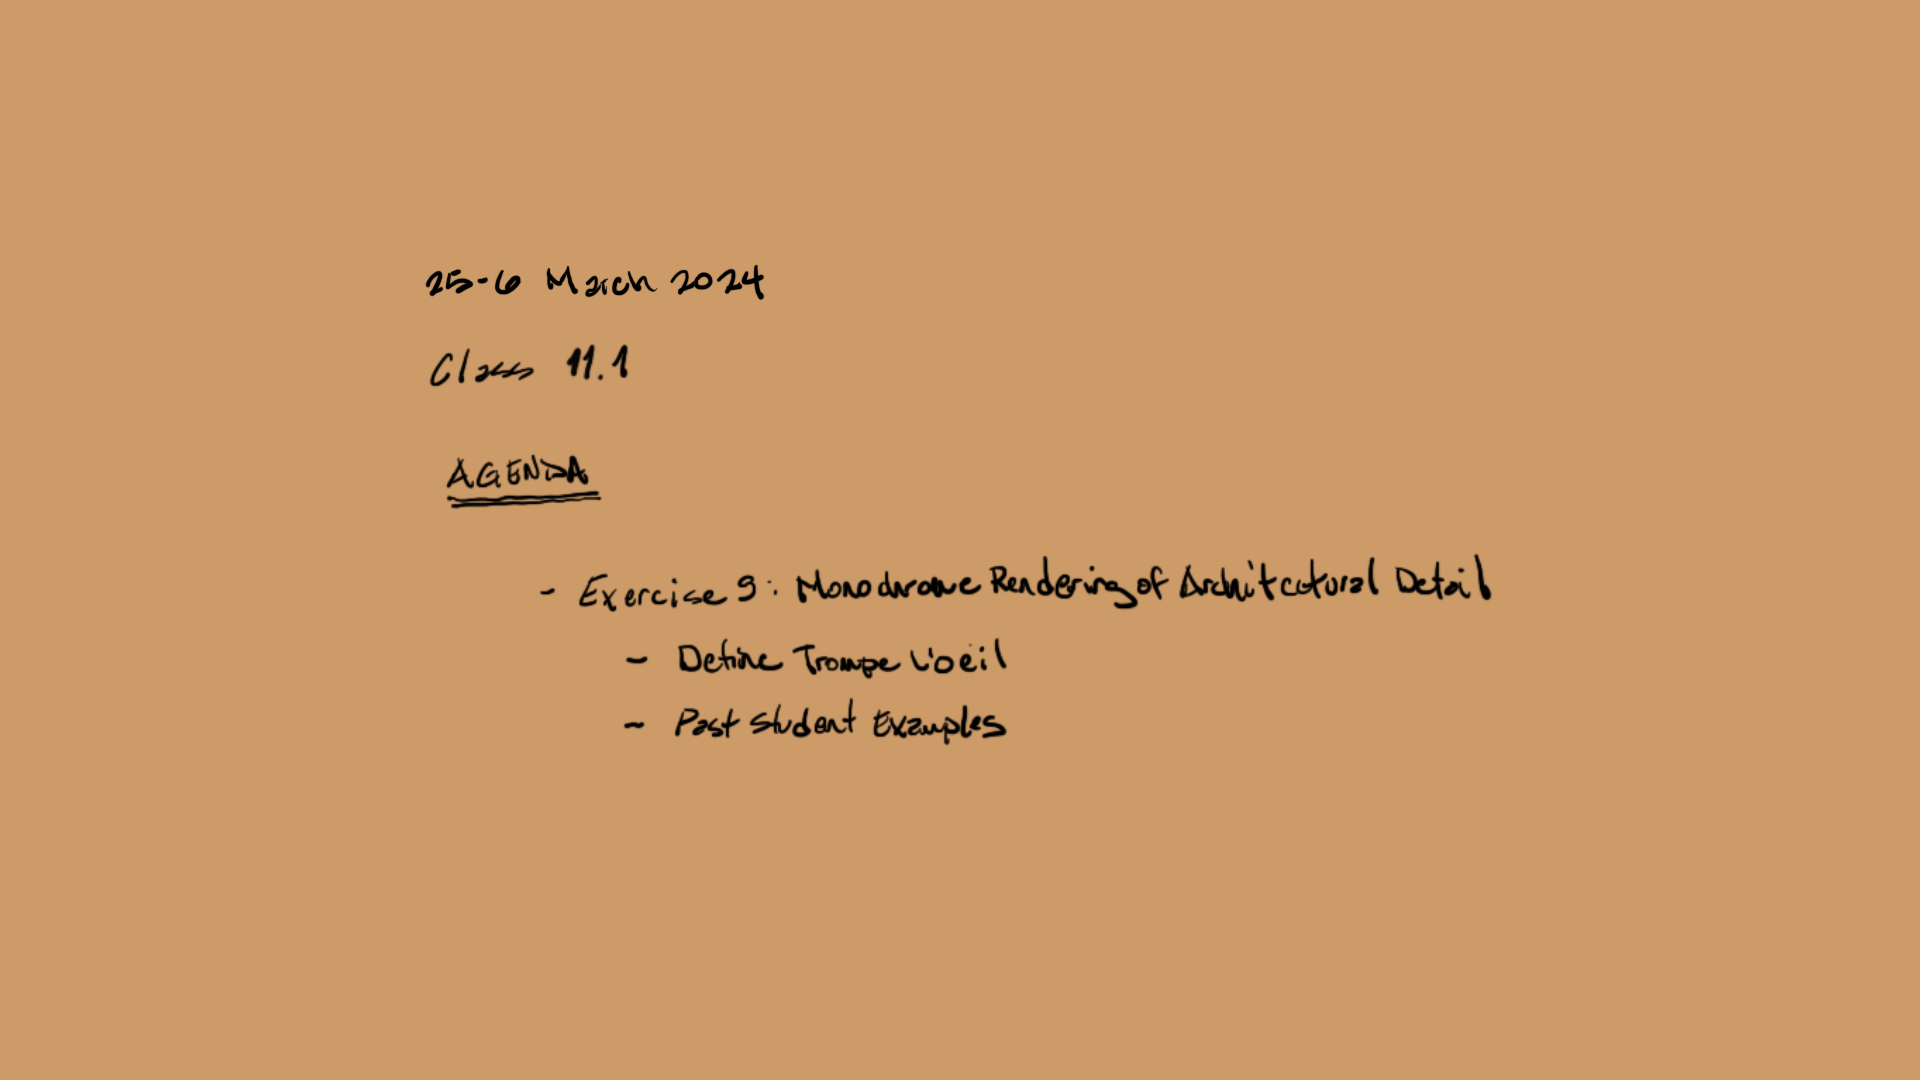 25-6 March 2024
Class 11.1
AGENDA
- Exercise 9: Monochrome Rendering of Architectural Detail
- Define Trompe L'oeil
- Past Student Examples